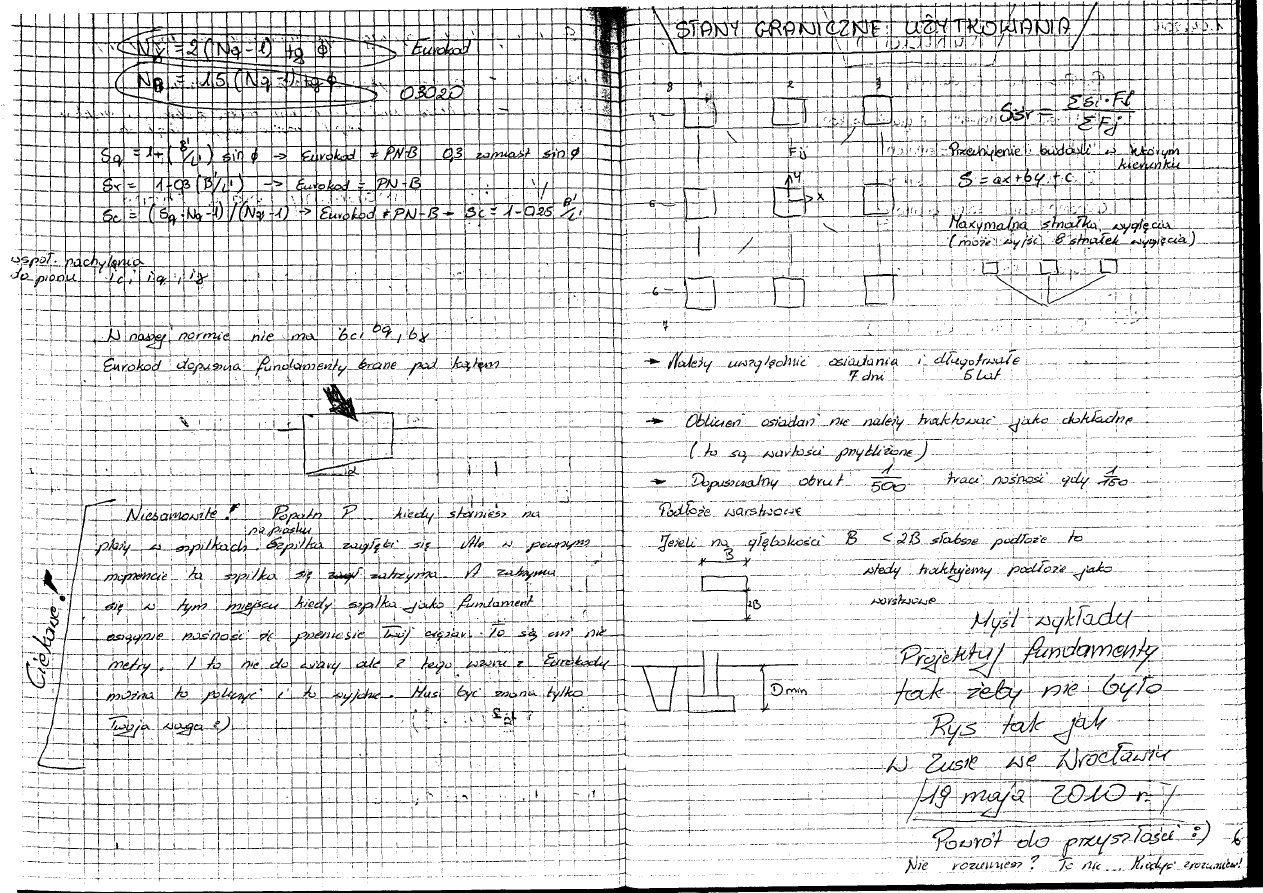 Nγ = 2(Nq-1) tg φ Eurokod
NB = 1,5 (Nq-1) tg φ 03020
Sq = 1+(B'/L') sin φ → Eurokod ≠ PN-B 0,3 zamiast sin φ
Sr = 1-0,3 (B'/L') → Eurokod = PN-B
Sc = (Sq·Nq-1)/(Nq-1) → Eurokod ≠ PN-B - Sc = 1-0,25 B'/L'
współ. nachylenia
do pionu ic, iq, iγ
W naszej normie nie ma bc, bq, bγ
Eurokod dopuszcza fundamenty brane pod kątem
α
Ciekawe!
Niesamowite! Popatrz P... kiedy staniesz na
plaży w szpilkach na piasku. Szpilka zagłębi się. Ale w pewnym
momencie ta szpilka się zatrzyma. A zatrzyma
się w tym miejscu kiedy szpilka jako fundament
osiągnie nośność że przeniesie Twój ciężar. To są cm nie
metry. I to nie do wiary ale z tego wzoru z Eurokodu
można to policzyć i to wyjdzie. Musi być znana tylko
Twoja waga :)
STANY GRANICZNE UŻYTKOWANIA
8 1 2 3
4
Fj
y
x
6
6
7
Sśr = Σsi·Fj / ΣFj
Przechylenie budowli w którym
kierunku
S = ax+by+c
Maxymalna strzałka wygięcia
(może wyjść 8 strzałek wygięcia)
→ Należy uwzględnić osiadania i długotrwałe
7 dni 5 lat
→ Obliczeń osiadań nie należy traktować jako dokładne
(to są wartości przybliżone)
→ Dopuszczalny obrót 1/500 traci nośność gdy 1/150
Podłoże warstwowe
Jeżeli na głębokości B < 2B słabsze podłoże to
wtedy traktujemy podłoże jako
warstwowe
B
2B
Dmin
Myśl wykłady
Projektuj fundamenty
tak żeby nie było
Rys tak jak
w Zusie we Wrocławiu
19 maja 2010 r.
Powrót do przyszłości :) 6
Nie rozumiesz? To nic... Kiedyś zrozumiesz!